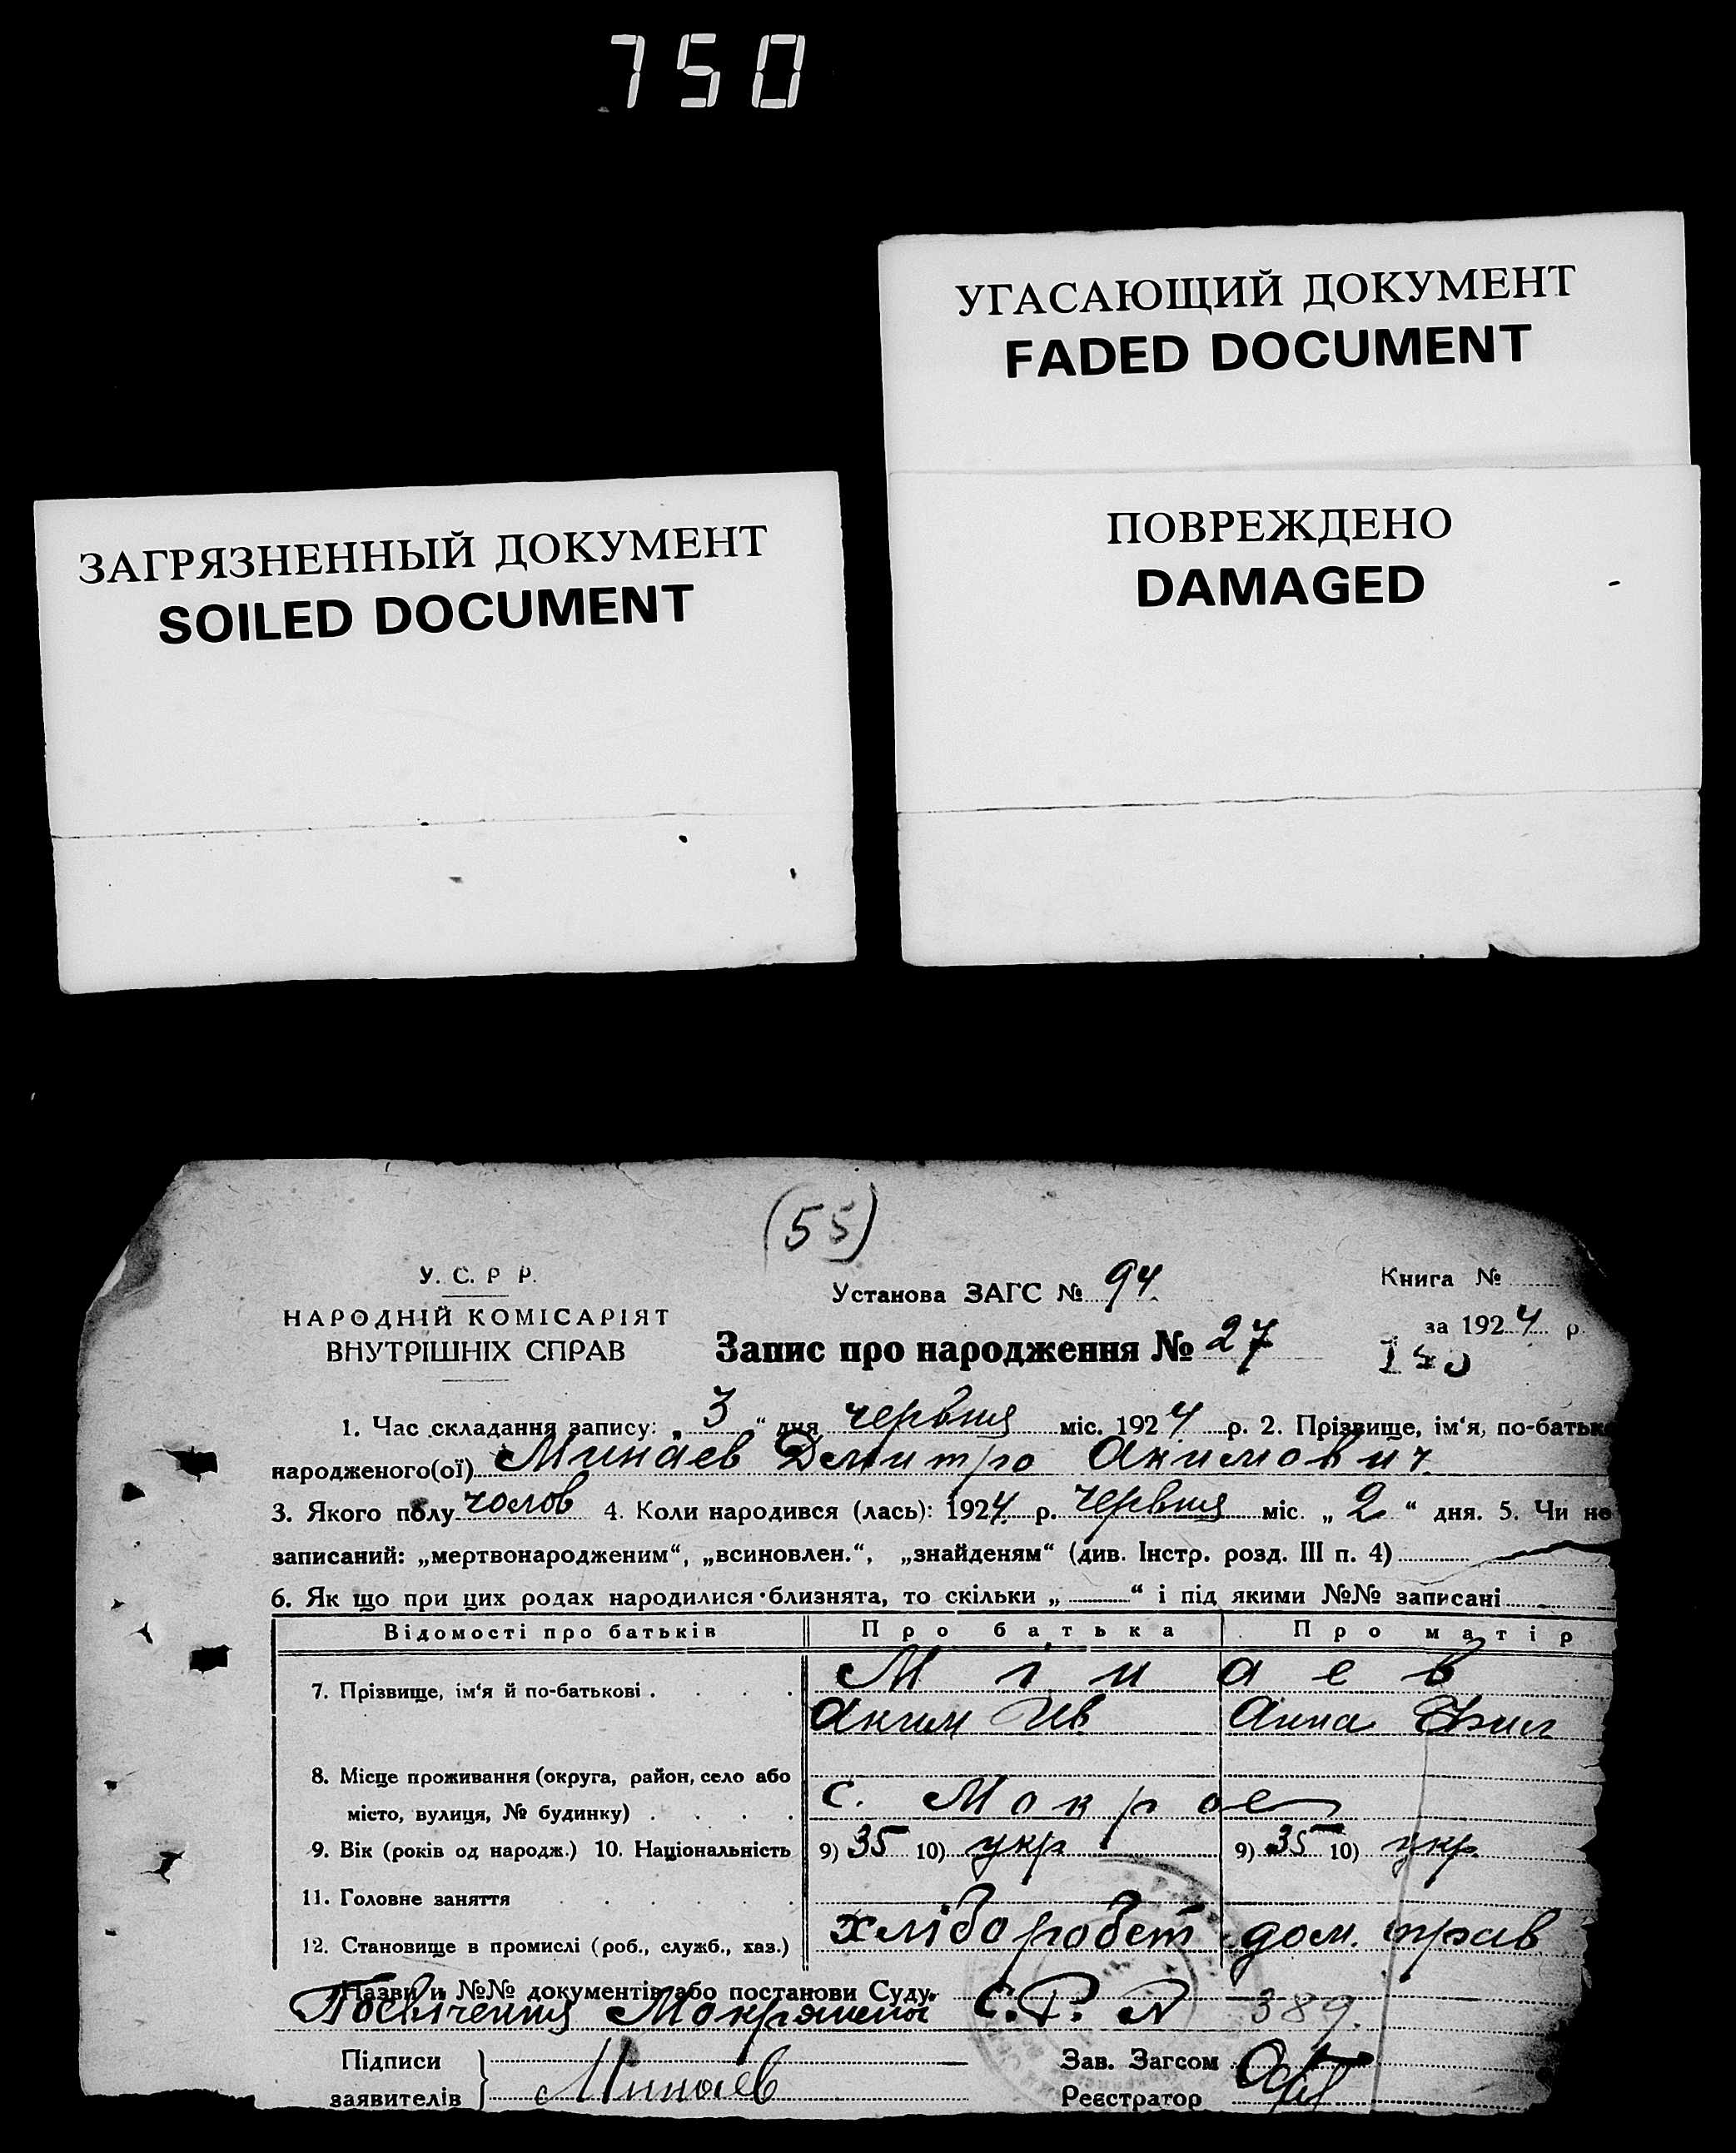 750
УГАСАЮЩИЙ ДОКУМЕНТ
FADED DOCUMENT
ПОВРЕЖДЕНО
DAMAGED
ЗАГРЯЗНЕННЫЙ ДОКУМЕНТ
SOILED DOCUMENT
(55)
У. С. Р Р.
НАРОДНІЙ КОМІСАРІЯТ
ВНУТРІШНІХ СПРАВ
Установа ЗАГС № 94
Книга №
за 1924 р.
Запис про народження № 27
1. Час складання запису: „ 3 “ дня червня міс. 1924 р. 2. Прізвище, ім‘я, по-батьк
народженого(ої) Минаев Дмитро Акимович
3. Якого полу чолов 4. Коли народився (лась): 1924 р. червня міс. „ 2 “ дня. 5. Чи не
записаний: „мертвонародженим“, „всиновлен.“, „знайденям“ (див. Інстр. розд. III п. 4)
6. Як що при цих родах народилися близнята, то скільки „ “ і під якими №№ записані
Відомості про батьків Про батька Про матір
7. Прізвище, ім‘я й по-батькові Мінаев
Аким Ив Анна
8. Місце проживання (округа, район, село або
місто, вулиця, № будинку) с. Мокрое
9. Вік (років од народж.) 10. Національність 9) 35 10) укр 9) 35 10) укр.
11. Головне заняття
12. Становище в промислі (роб., служб., хаз.) хлібороб дом.
Назви и №№ документів або постанови Суду.
Посвічення С.Р. № 389.
Підписи
заявителів } Минаев
Зав. Загсом
Реєстратор